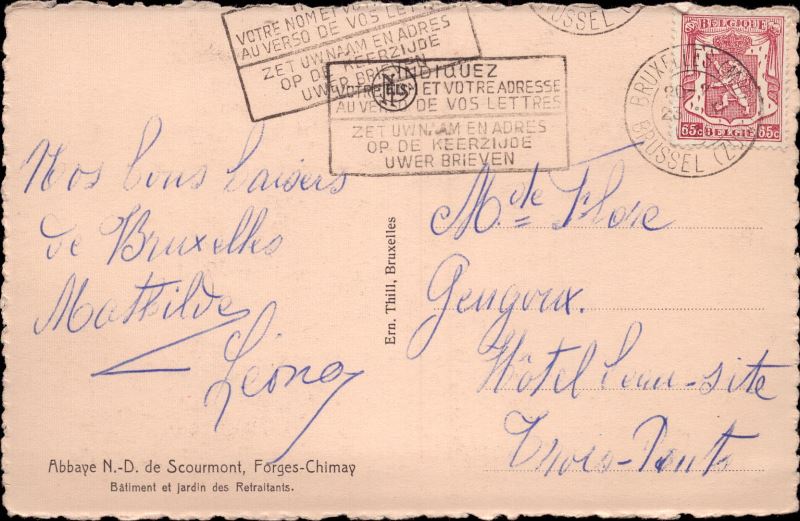 VOTRE NOM ET VOTRE
AU VERSO DE VOS LETTRES
ZET UW NAAM EN ADRES
OP DE KEERZIJDE
UWER BRIEVEN
INDIQUEZ
VOTRE NOM ET VOTRE ADRESSE
AU VERSO DE VOS LETTRES
ZET UW NAAM EN ADRES
OP DE KEERZIJDE
UWER BRIEVEN
BRUSSEL
BELGIQUE
65c BELGIE 65c
BRUXELLES
BRUSSEL (Z)
Nos bons baisers
de Bruxelles
Mathilde
Léona
Ern. Thill, Bruxelles
Mde Flore
Gengoux.
Hôtel beau-site
Trois-Ponts
Abbaye N.-D. de Scourmont, Forges-Chimay
Bâtiment et jardin des Retraitants.